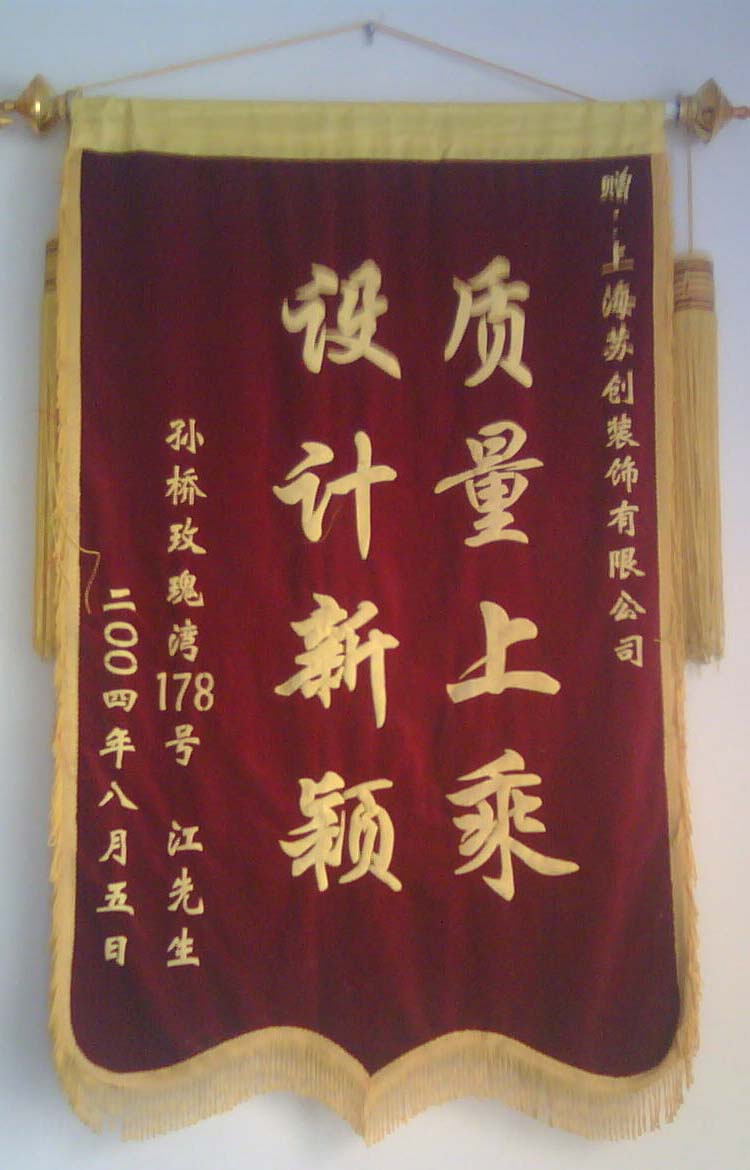 赠：上海苏创装饰有限公司
质量上乘
设计新颖
孙桥玫瑰湾178号 江先生
二〇〇四年八月五日